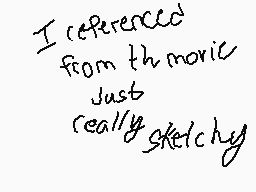 I referenced
from th movie
Just
really sketchy